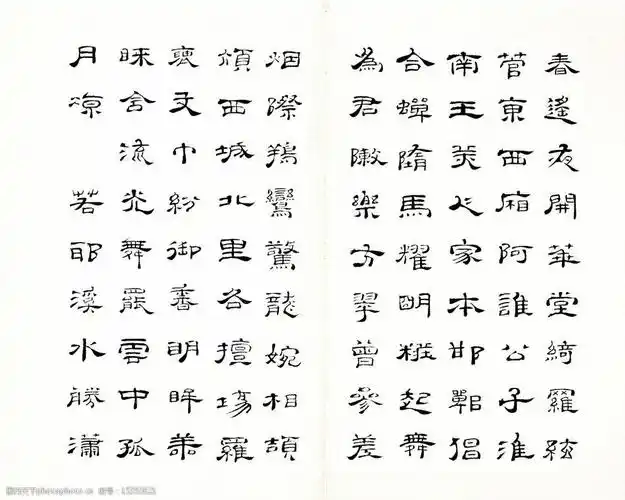 春遙夜開華堂綺羅絃
管東西廂阿誰公子淮
南王美人家本邯鄲倡
合蟬隋馬耀明糚起舞
為君敶樂方翠曾參差
烟際鵷鸞驚龍婉相頡
頏西城北里各擅場羅
褏文巾紛御香明眸善
睞含流光舞罷雲中孤
月凉 若耶溪水勝瀟